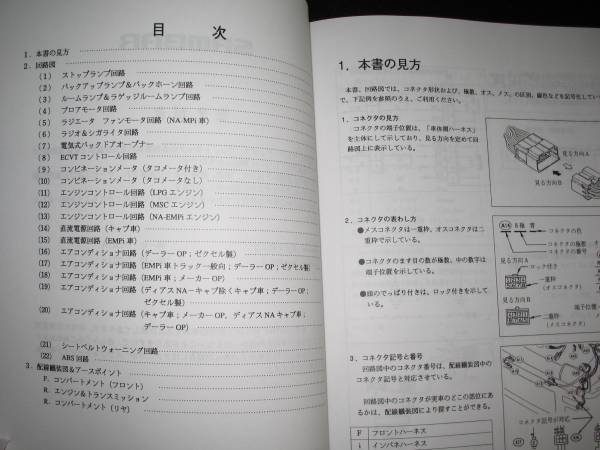 目次
1．本書の見方
2．回路図
(1) ストップランプ回路
(2) バックアップランプ＆バックホーン回路
(3) ルームランプ＆ラゲッジルームランプ回路
(4) ブロアモータ回路
(5) ラジエータ ファンモータ回路（NA-MPi 車）
(6) ラジオ＆シガライタ回路
(7) 電気式バックドアオープナー
(8) ECVTコントロール回路
(9) コンビネーションメータ（タコメータ付き）
(10) コンビネーションメータ（タコメータなし）
(11) エンジンコントロール回路（LPGエンジン）
(12) エンジンコントロール回路（MSCエンジン）
(13) エンジンコントロール回路（NA-EMPiエンジン）
(14) 直流電源回路（キャブ車）
(15) 直流電源回路（EMPi車）
(16) エアコンディショナ回路（デーラーOP；ゼクセル製）
(17) エアコンディショナ回路（EMPi車トラック一般向；デーラーOP；ゼクセル製）
(18) エアコンディショナ回路（EMPi車；メーカーOP）
(19) エアコンディショナ回路（ディアスNA－キャブ除くキャブ車；デーラーOP；
ゼクセル製）
(20) エアコンディショナ回路（キャブ車；メーカーOP，ディアスNAキャブ車；
デーラーOP）
(21) シートベルトウォーニング回路
(22) ABS回路
3．配線艤装図＆アースポイント
F．コンパートメント（フロント）
R．エンジン＆トランスミッション
R．コンパートメント（リヤ）
1．本書の見方
本書、回路図では、コネクタ形状および、極数、オス、メス、の区別、線色などを記号化してい
で、下記例を参照のうえ、ご利用ください。
1．コネクタの見方
コネクタの端子位置は、「車体側ハーネス」
を主体にして示しており、見る方向を定めて回
路図上に表示している。
見る方向A
見る方向B
2．コネクタの表わし方
●メスコネクタは一重枠、オスコネクタは二
重枠で示している。
●コネクタのます目の数が極数、中の数字は
端子位置を示している。
●頭のでっぱり付きは、ロック付きを示して
い
A16 8極 青
コネクタの色
コネクタの極数
コネクタの番号
見る方向A
ロック付き
一重枠
（オスコネクタ）
見る方向B
端子位置
二重枠
（メスコネクタ）
3．コネクタ記号と番号
回路図中のコネクタ番号は、配線艤装図中の
コネクタ記号と対応させている。
回路図中のコネクタが実車のどこの部位にあ
るかは、配線艤装図により探すことができる。
F フロントハーネス
i インパネハーネス
コネクタ記号が対応